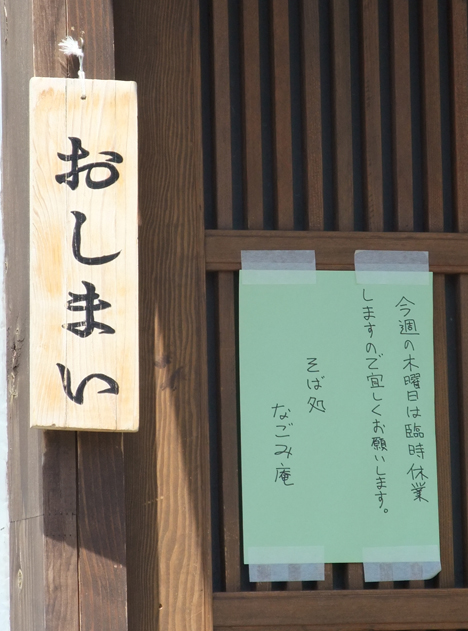 おしまい
今週の木曜日は臨時休業
しますので宜しくお願いします。
そば処
なごみ庵